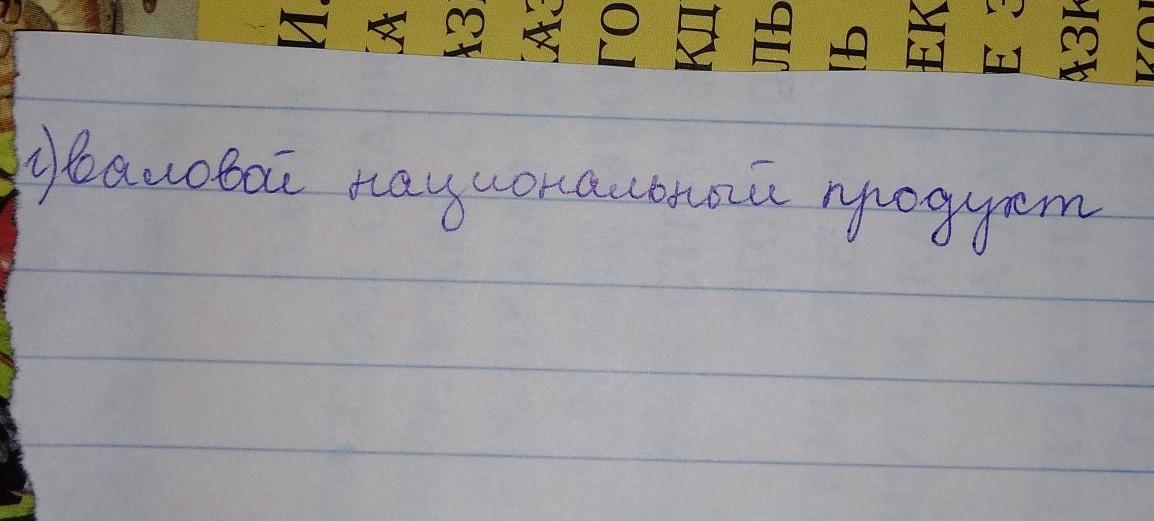 И.
КА
АЗ
КАЗ
ГО
КД
ЛЬ
Ь
ЕК
Е З
АЗК
КО
г) валовой национальный продукт